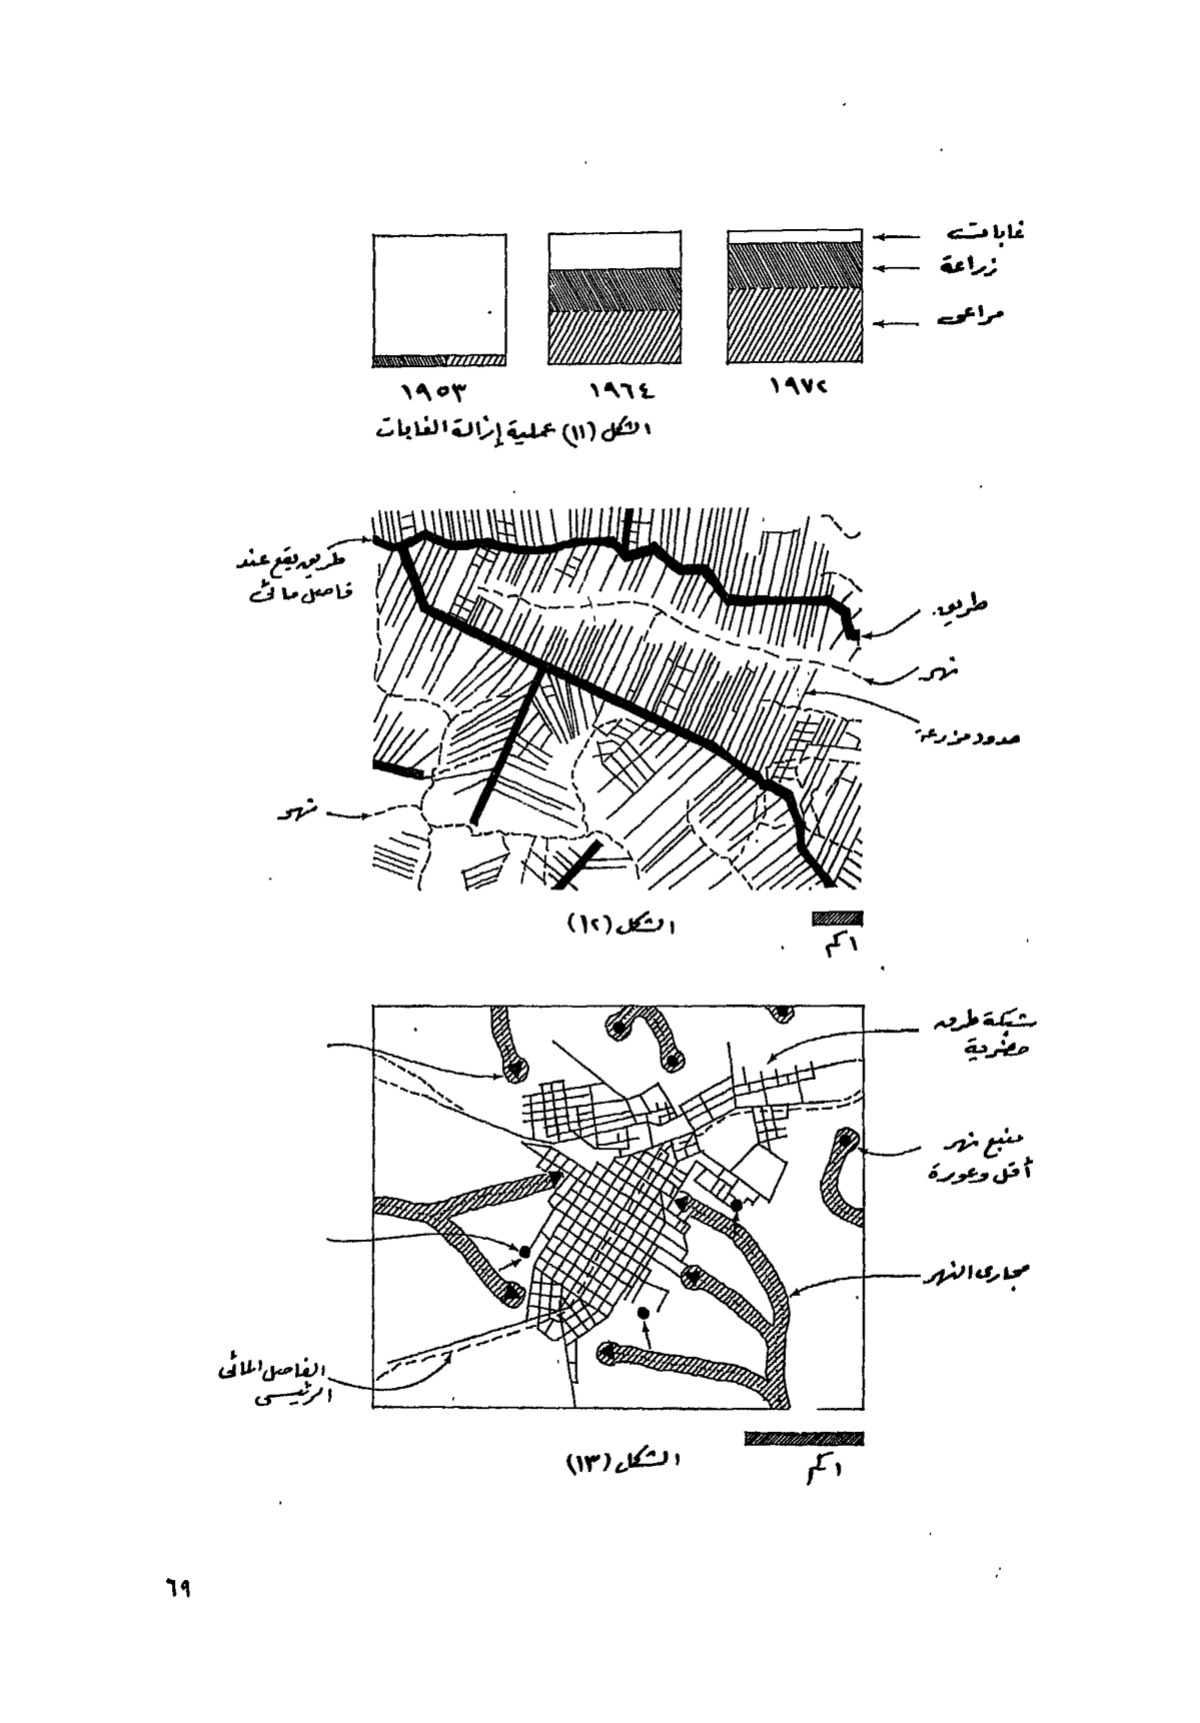 غابات
زراعة
مراعى
١٩٥٣
١٩٦٤
١٩٧٢
الشكل (١١) عملية إزالة الغابات
طريق يقع عند
فاصل مائى
طريق
نهر
حدود مزرعة
نهر
الشكل (١٢)
١كم
شبكة طرق
حضرية
منبع نهر
أقل وعورة
مجارى النهر
الفاصل المائى
الرئيسى
الشكل (١٣)
١كم
٦٩